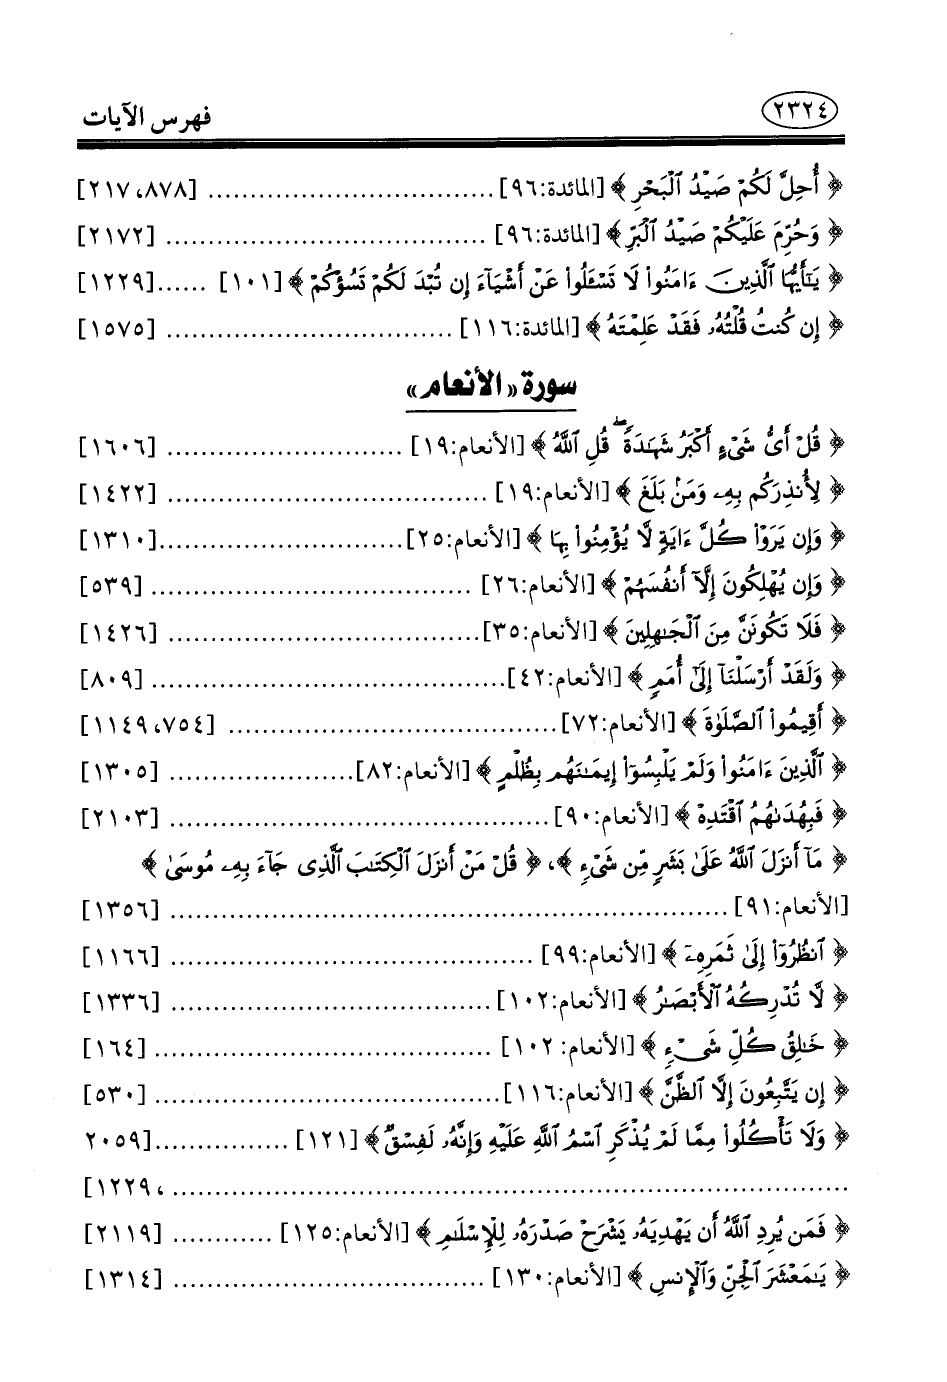 ٢٣٢٤ فهرس الآيات
﴿ أُحِلَّ لَكُمْ صَيْدُ ٱلْبَحْرِ ﴾ [المائدة:٩٦] ................................. [٨٧٨، ٢١٧]
﴿ وَحُرِّمَ عَلَيْكُمْ صَيْدُ ٱلْبَرِّ ﴾ [المائدة:٩٦] ..................................... [٢١٧٢]
﴿ يَـٰٓأَيُّهَا ٱلَّذِينَ ءَامَنُوا۟ لَا تَسْـَٔلُوا۟ عَنْ أَشْيَآءَ إِن تُبْدَ لَكُمْ تَسُؤْكُمْ ﴾ [١٠١] ......[١٢٢٩]
﴿ إِن كُنتُ قُلْتُهُۥ فَقَدْ عَلِمْتَهُۥ ﴾ [المائدة:١١٦] ................................. [١٥٧٥]
سورة «الأنعام»
﴿ قُلْ أَىُّ شَىْءٍ أَكْبَرُ شَهَـٰدَةً ۖ قُلِ ٱللَّهُ ﴾ [الأنعام:١٩] ............................ [١٦٠٦]
﴿ لِأُنذِرَكُم بِهِۦ وَمَنۢ بَلَغَ ﴾ [الأنعام:١٩] ..................................... [١٤٢٢]
﴿ وَإِن يَرَوْا۟ كُلَّ ءَايَةٍ لَّا يُؤْمِنُوا۟ بِهَا ﴾ [الأنعام:٢٥].............................[١٣١٠]
﴿ وَإِن يُهْلِكُونَ إِلَّآ أَنفُسَهُمْ ﴾ [الأنعام:٢٦] ..................................... [٥٣٩]
﴿ فَلَا تَكُونَنَّ مِنَ ٱلْجَـٰهِلِينَ ﴾ [الأنعام:٣٥]..................................... [١٤٢٦]
﴿ وَلَقَدْ أَرْسَلْنَآ إِلَىٰٓ أُمَمٍ ﴾ [الأنعام:٤٢]......................................... [٨٠٩]
﴿ أَقِيمُوا۟ ٱلصَّلَوٰةَ ﴾ [الأنعام:٧٢]...................................... [٧٥٤، ١١٤٩]
﴿ ٱلَّذِينَ ءَامَنُوا۟ وَلَمْ يَلْبِسُوٓا۟ إِيمَـٰنَهُم بِظُلْمٍ ﴾ [الأنعام:٨٢]...................... [١٣٠٥]
﴿ فَبِهُدَىٰهُمُ ٱقْتَدِهْ ﴾ [الأنعام:٩٠]............................................ [٢١٠٣]
﴿ مَآ أَنزَلَ ٱللَّهُ عَلَىٰ بَشَرٍ مِّن شَىْءٍ ﴾، ﴿ قُلْ مَنْ أَنزَلَ ٱلْكِتَـٰبَ ٱلَّذِى جَآءَ بِهِۦ مُوسَىٰ ﴾
[الأنعام:٩١] ................................................................. [١٣٥٦]
﴿ ٱنظُرُوٓا۟ إِلَىٰ ثَمَرِهِۦٓ ﴾ [الأنعام:٩٩] .......................................... [١١٦٦]
﴿ لَّا تُدْرِكُهُ ٱلْأَبْصَـٰرُ ﴾ [الأنعام:١٠٢] ..................................... [١٣٣٦]
﴿ خَـٰلِقُ كُلِّ شَىْءٍ ﴾ [الأنعام: ١٠٢] ....................................... [١٦٤]
﴿ إِن يَتَّبِعُونَ إِلَّا ٱلظَّنَّ ﴾ [الأنعام:١١٦]........................................ [٥٣٠]
﴿ وَلَا تَأْكُلُوا۟ مِمَّا لَمْ يُذْكَرِ ٱسْمُ ٱللَّهِ عَلَيْهِ وَإِنَّهُۥ لَفِسْقٌ ﴾ [١٢١] ................[٢٠٥٩
............................................................................... ، ١٢٢٩]
﴿ فَمَن يُرِدِ ٱللَّهُ أَن يَهْدِيَهُۥ يَشْرَحْ صَدْرَهُۥ لِلْإِسْلَـٰمِ ﴾ [الأنعام:١٢٥] ............ [٢١١٩]
﴿ يَـٰمَعْشَرَ ٱلْجِنِّ وَٱلْإِنسِ ﴾ [الأنعام:١٣٠] .................................... [١٣١٤]